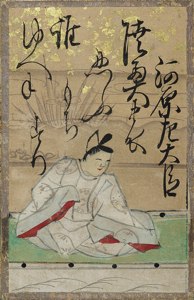 河原左大臣
陸奥
しのふ
もち
すり
誰
ゆへに